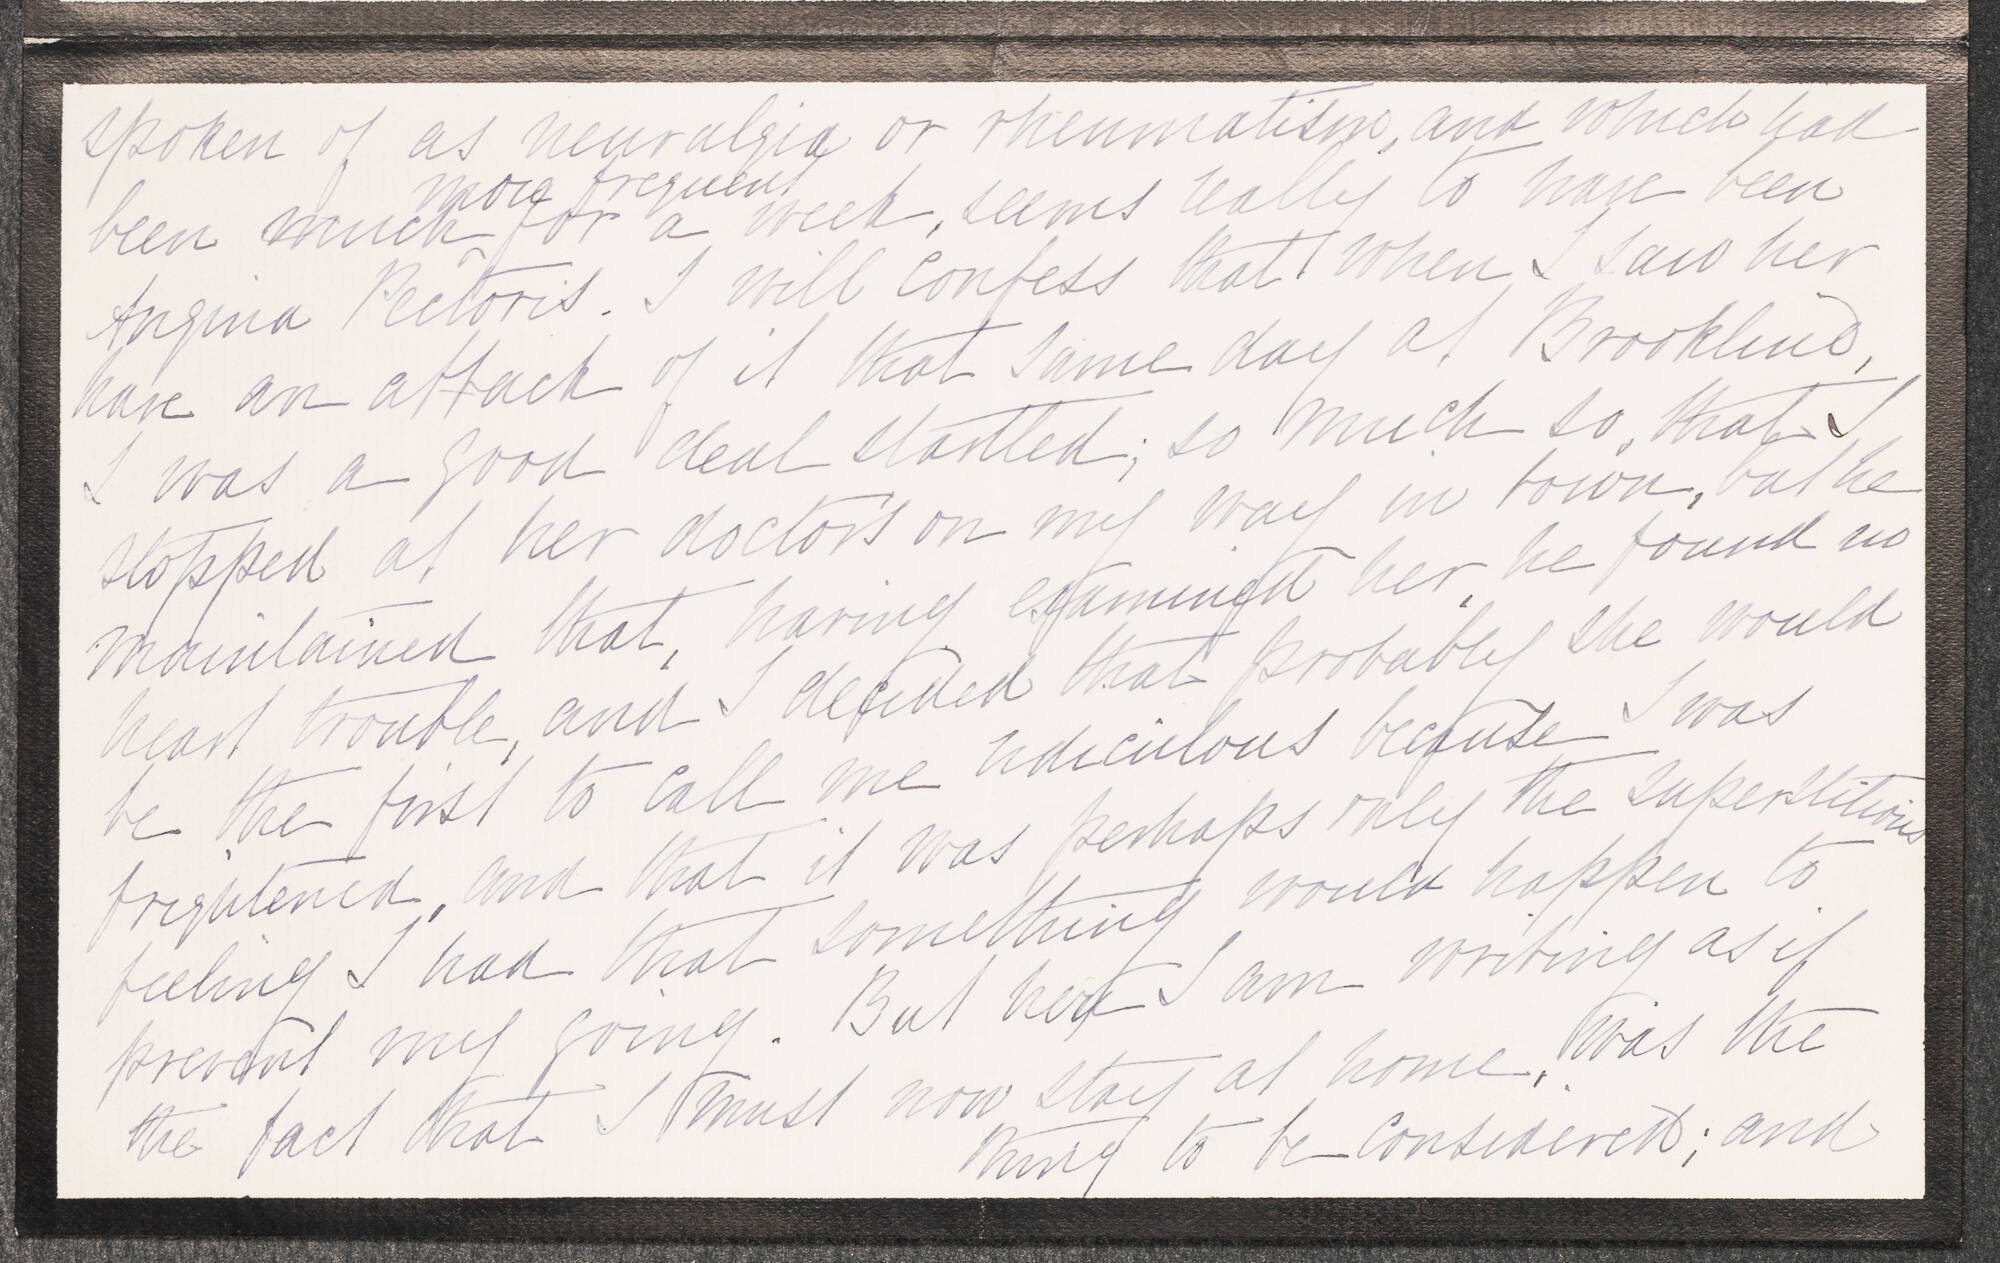 spoken of as neuralgia or rheumatism, and which had
more frequent
been much for a week, seems really to have been
Angina Pectoris. I will confess that when I saw her
have an attack of it that same day at Brookline,
I was a good deal startled; so much so, that I
stopped at her doctor's on my way in town, but he
maintained that, having examined her, he found no
heart trouble, and I decided that probably she would
be the first to call me ridiculous because I was
frightened, and that it was perhaps only the superstitious
feeling I had that something would happen to
prevent my going. But here I am writing as if
the fact that I must now stay at home, was the
thing to be considered; and